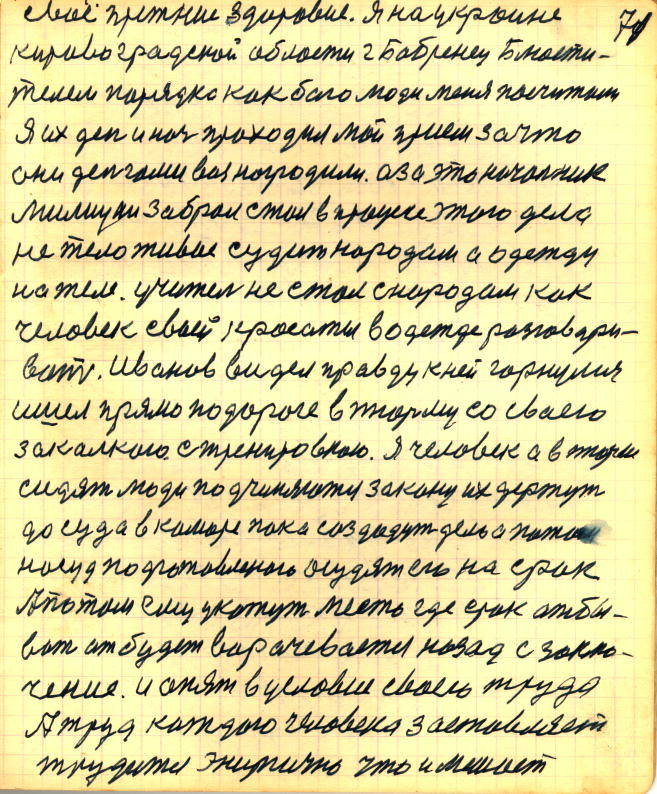 свое прежние здоровие. Я на украине 71
кировоградской области г Бобренец Блюсти-
телем порядка как бога люди меня посчитали
Я их ден и ноч проходил мой прием за что
они денгами возногродили. а за это началник
милицыи забрал стол в процесе этого дела
не тело живое судит народам а одежду
на теле. учител не стал с народам как
человек своей красаты в одежде разговари-
ват. Иванов видел правду к ней горнулися
ишел прямо по дороге в тюрму со своею
закалкою с тренировкою. Я человек а в тюрме
сидят люди подчиняюти закону их держут
до суда в каморе пока создадут дело а потом
на суд подготовленого осудят его на срок
А потом ему укажут место где срок атбы-
ват атбудет ворачевается назад с заклю-
чение. и опят в условие своего труда
А труд каждого человека заставляет
трудится энергично что и мешает